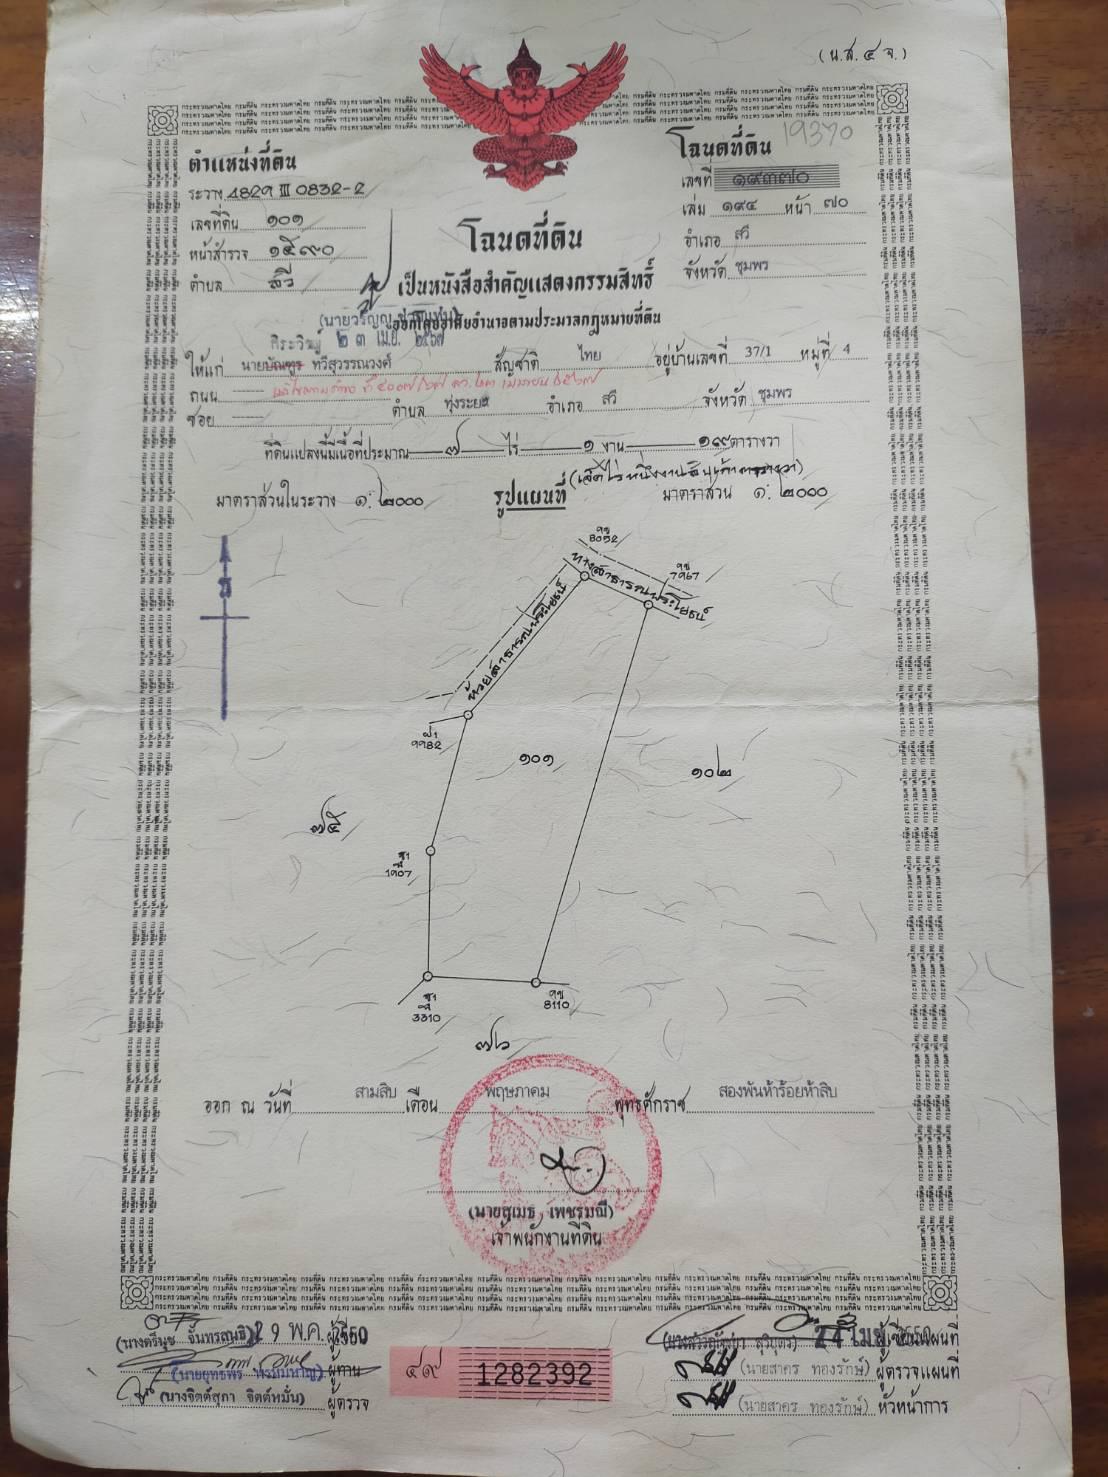 (น.ส. ๔ จ.)
ตำแหน่งที่ดิน
ระวาง 4829 III 0832-2
เลขที่ดิน ๑๐๑
หน้าสำรวจ ๑๕๙๐
ตำบล สวี
โฉนดที่ดิน 19370
เลขที่ ๑๙๓๗๐
เล่ม ๑๙๔ หน้า ๗๐
อำเภอ สวี
จังหวัด ชุมพร
โฉนดที่ดิน
เป็นหนังสือสำคัญแสดงกรรมสิทธิ์
ออกโดยอาศัยอำนาจตามประมวลกฎหมายที่ดิน
๒๓ เม.ย. ๒๕๖๗
ให้แก่ นายบัณฑูร ทวีสุวรรณวงศ์ สัญชาติ ไทย อยู่บ้านเลขที่ 37/1 หมู่ที่ 4
ถนน
ซอย ตำบล ทุ่งระยะ อำเภอ สวี จังหวัด ชุมพร
ที่ดินแปลงนี้มีเนื้อที่ประมาณ ๗ ไร่ ๑ งาน ๑๙ ตารางวา
(เจ็ดไร่หนึ่งงานสิบเก้าตารางวา)
มาตราส่วนในระวาง ๑:๒๐๐๐ รูปแผนที่ มาตราส่วน ๑:๒๐๐๐
น
8092
7967
ทางสาธารณประโยชน์
ห้วยสาธารณประโยชน์
9982
๑๐๑
๑๐๒
๗๕
1907
3310
8110
๗๖
ออก ณ วันที่ สามสิบ เดือน พฤษภาคม พุทธศักราช สองพันห้าร้อยห้าสิบ
(นายสุเมธ เพชรมณี)
เจ้าพนักงานที่ดิน
(นางตรีนุช จันทรสุทธิ) 29 พ.ค. 2550
ผู้ทาน
(นางจิตต์สุภา จิตต์หมั่น) ผู้ตรวจ
๔๙ 1282392
ผู้เขียนแผนที่
(นายสาคร ทองรักษ์) ผู้ตรวจแผนที่
(นายสาคร ทองรักษ์) หัวหน้าการ